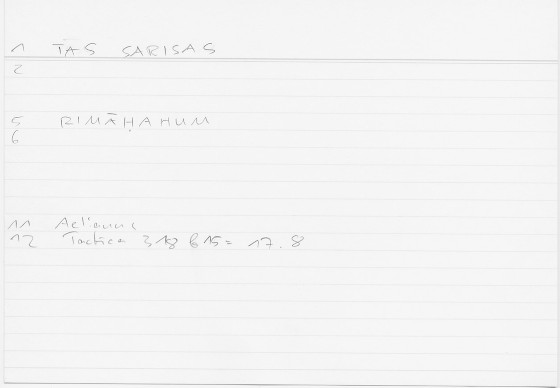 1 TAS SARISAS
2
5 RIMĀḤAHUM
6
11 Aelianus
12 Tactica 318 b15 = 17.8